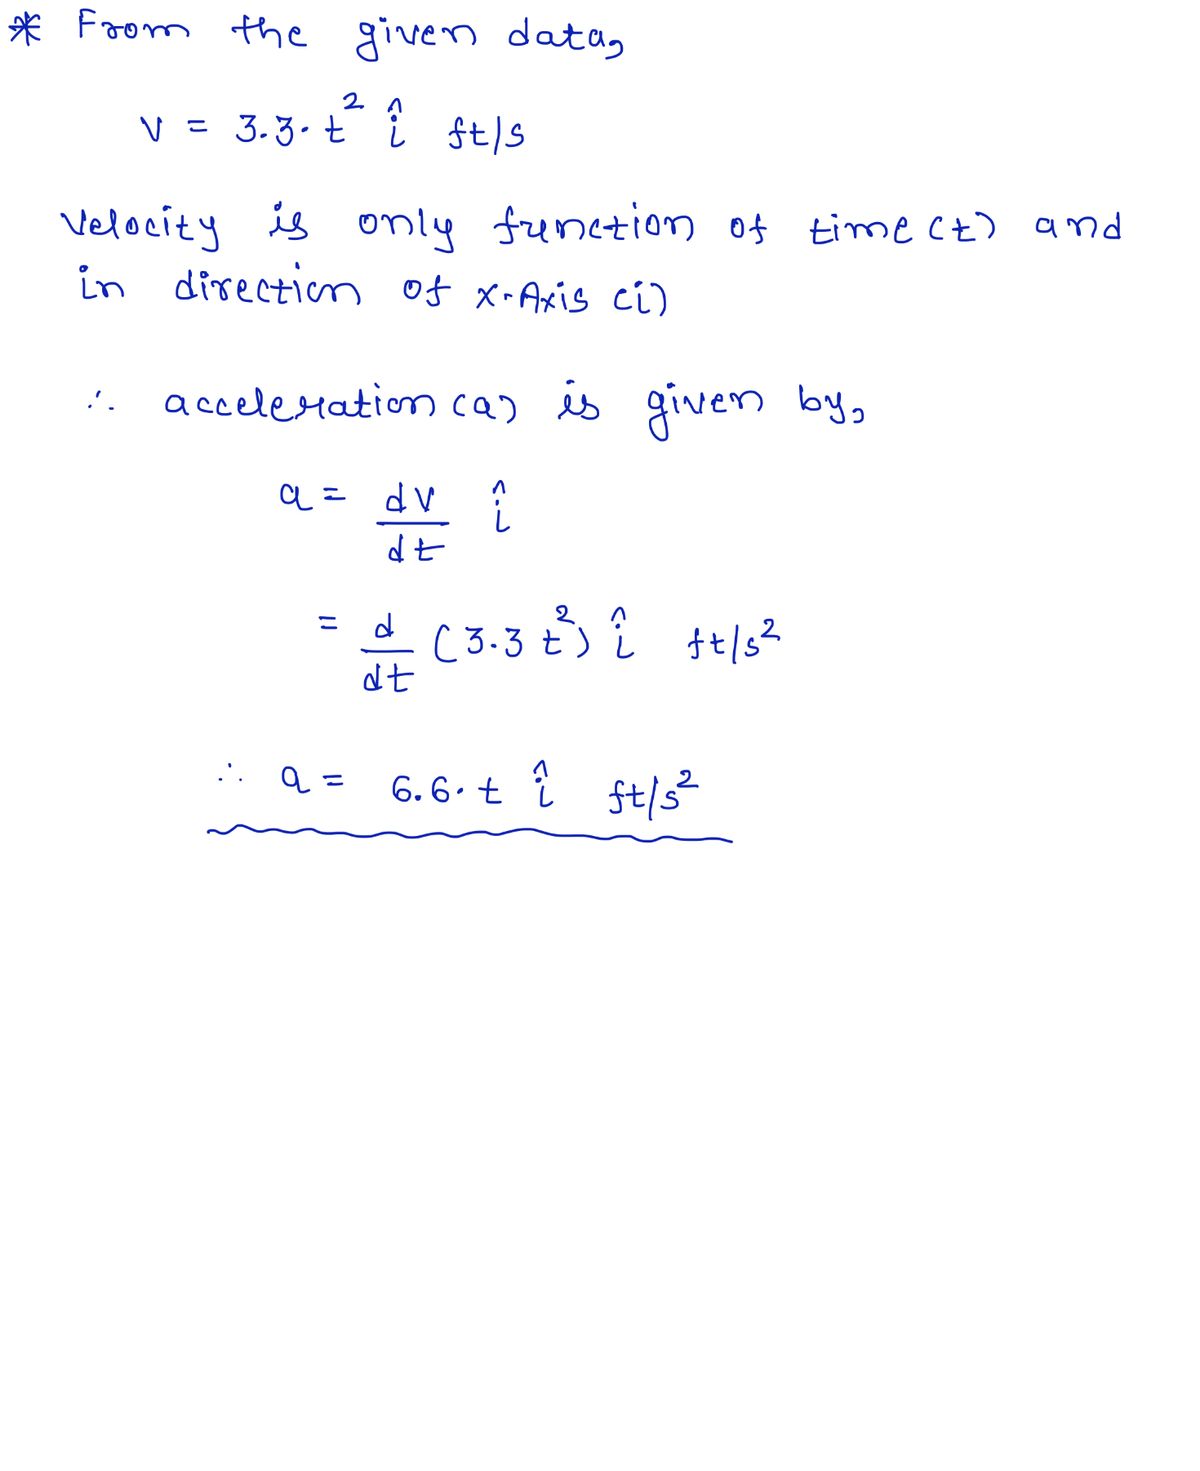 * From the given data,
v = 3.3·t² î ft/s
Velocity is only function of time (t) and
in direction of x-Axis (i)
∴ acceleration (a) is given by,
a = dv/dt î
= d/dt (3.3 t²) î ft/s²
∴ a = 6.6·t î ft/s²